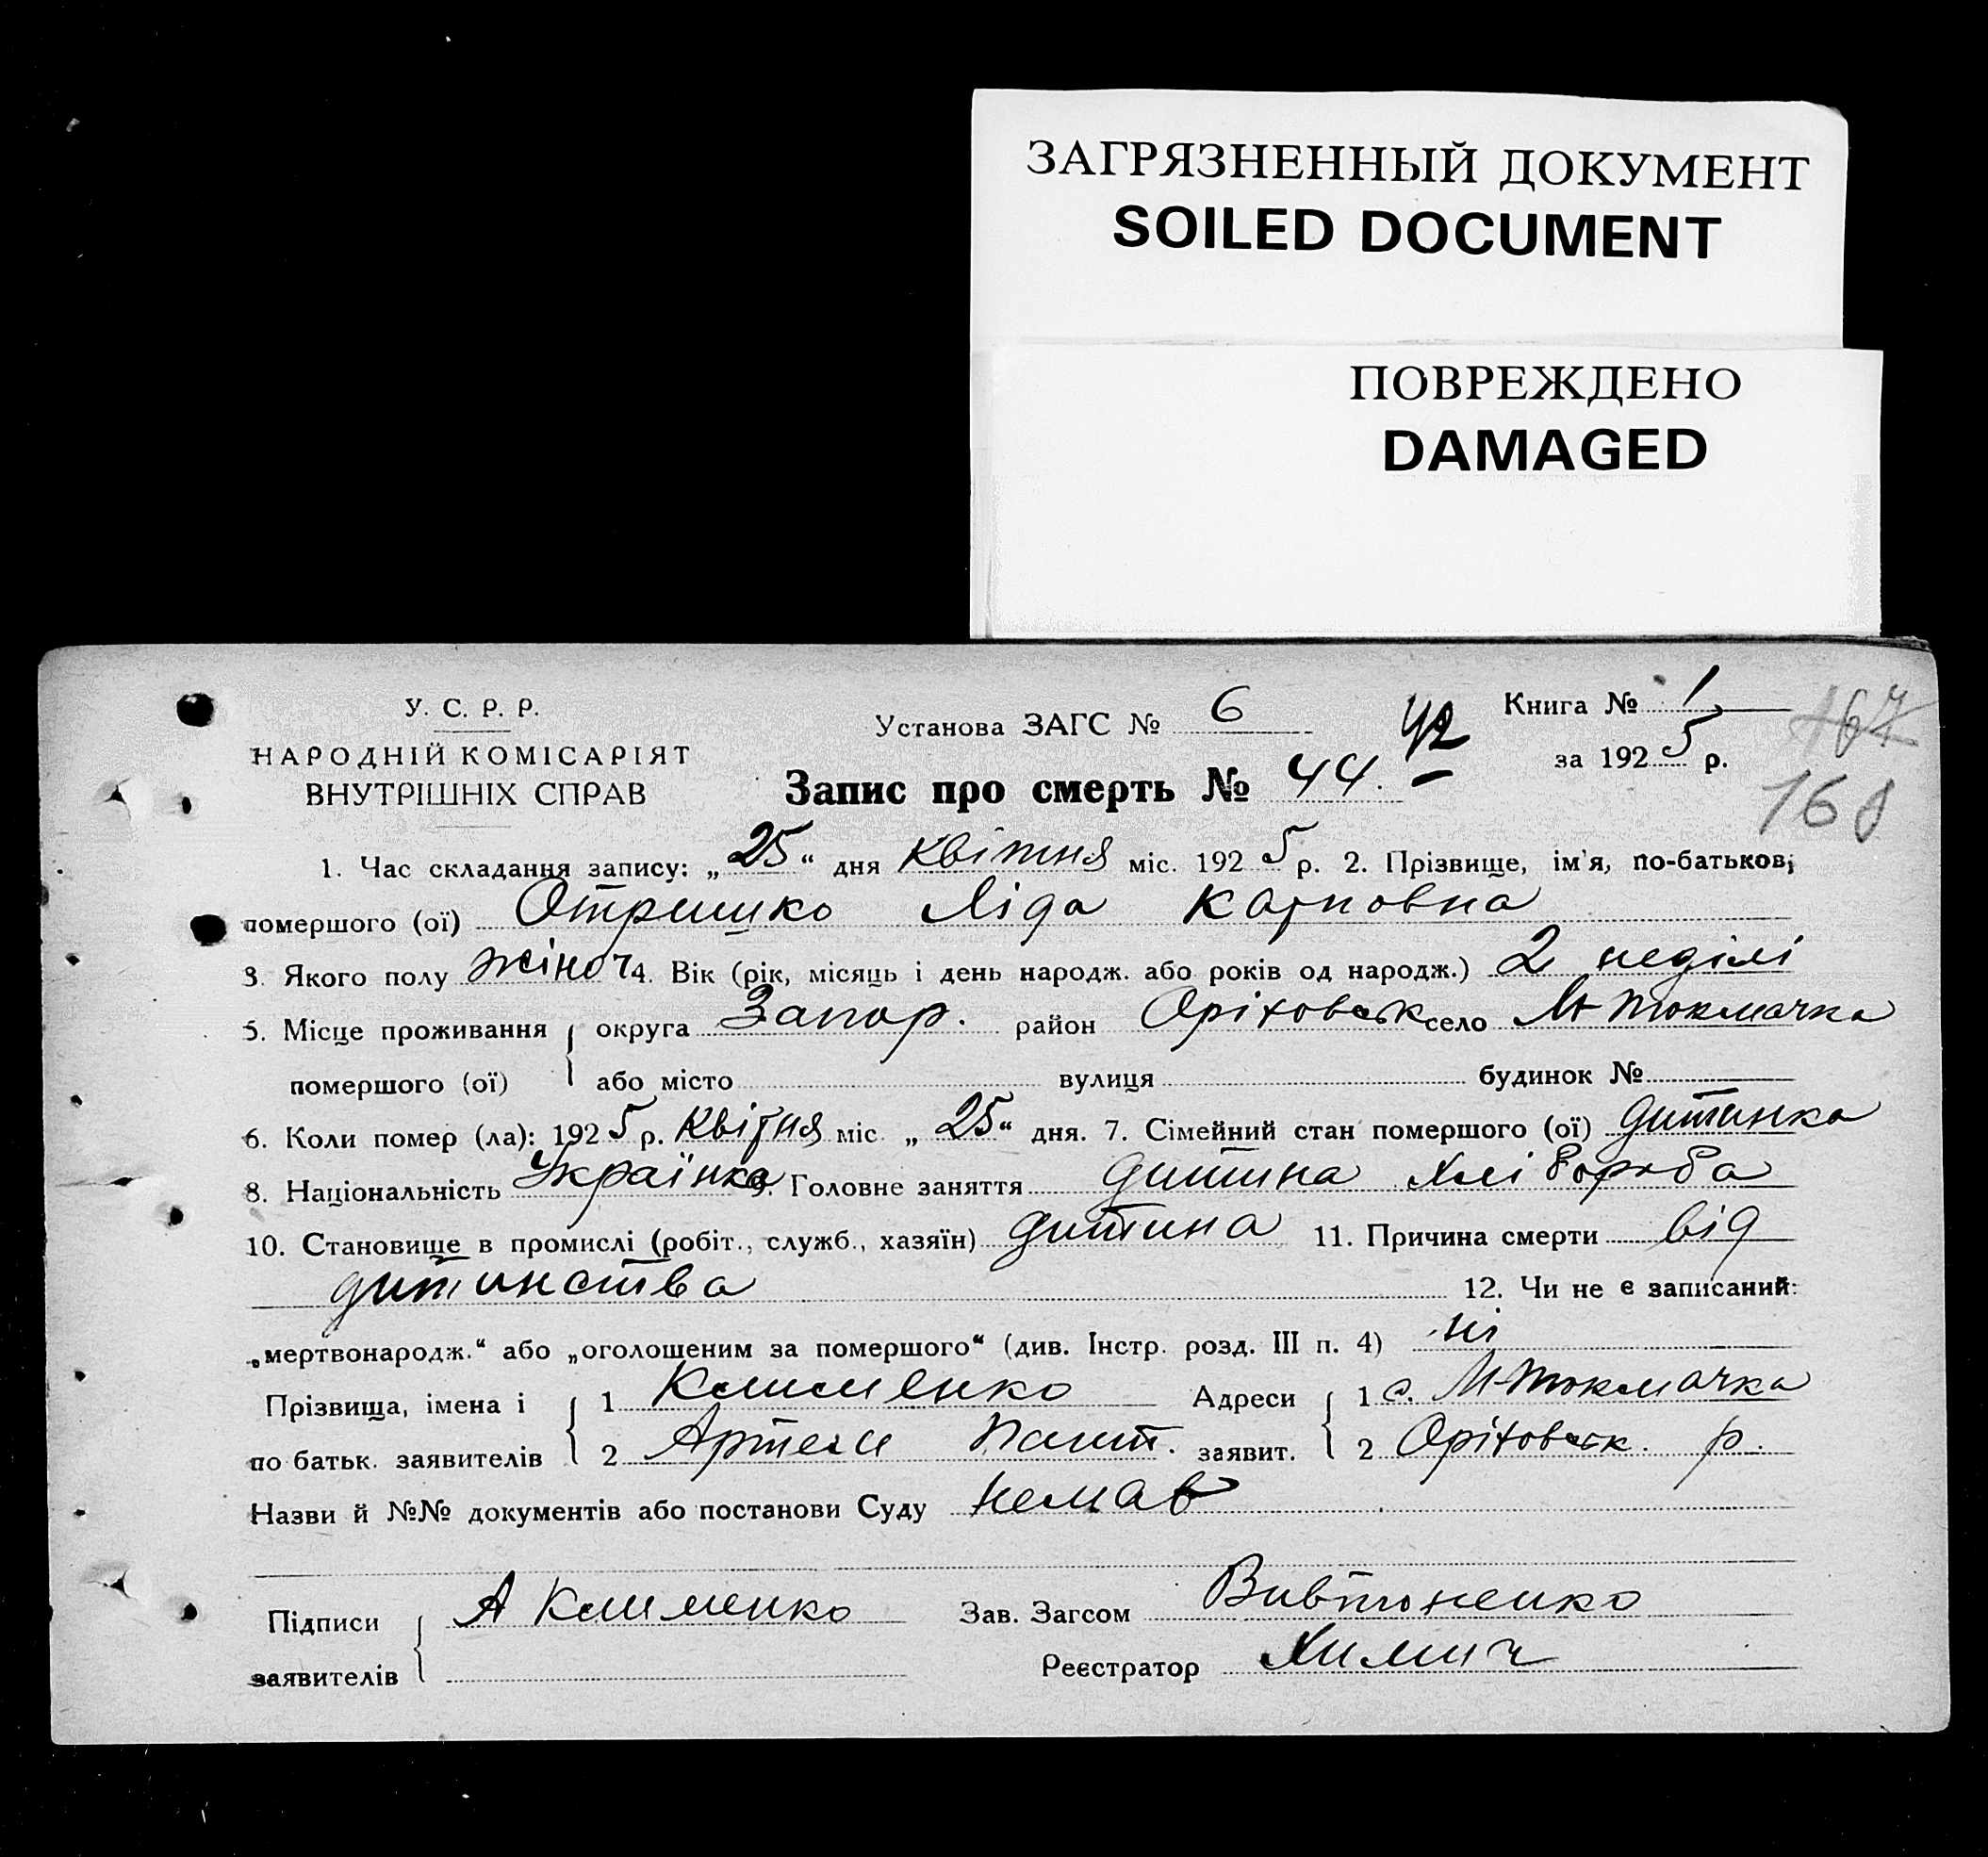 ЗАГРЯЗНЕННЫЙ ДОКУМЕНТ
SOILED DOCUMENT
ПОВРЕЖДЕНО
DAMAGED
У. С. Р. Р.
НАРОДНІЙ КОМІСАРІЯТ
ВНУТРІШНІХ СПРАВ
Установа ЗАГС № 6
Книга № 1
за 1925 р.
167
168
Запис про смерть № 44. 42
1. Час складання запису: „25“ дня квітня міс. 1925 р. 2. Прізвище, ім'я, по-батькові
помершого (ої) Отришко Ліда Карповна
3. Якого полу жіноч 4. Вік (рік, місяць і день народж. або років од народж.) 2 неділі
5. Місце проживання округа Запор. район Оріховськ село М Токмачка
помершого (ої) або місто вулиця будинок №
6. Коли помер (ла): 1925 р. квітня міс. „25“ дня. 7. Сімейний стан помершого (ої) дитинка
8. Національність Українка 9. Головне заняття дитина хлібороба
10. Становище в промислі (робіт., служб., хазяїн) дитина 11. Причина смерти від
дитинства 12. Чи не є записаний:
„мертвонародж.“ або „оголошеним за помершого“ (див. Інстр. розд. III п. 4) ні
Прізвища, імена і 1 Клименко Адреси 1 с. М-Токмачка
по батьк. заявителів 2 Артем Пант. заявит. 2 Оріховськ. р.
Назви й №№ документів або постанови Суду немає
Підписи А Клименко Зав. Загсом Вивтоненко
заявителів Реєстратор Химич